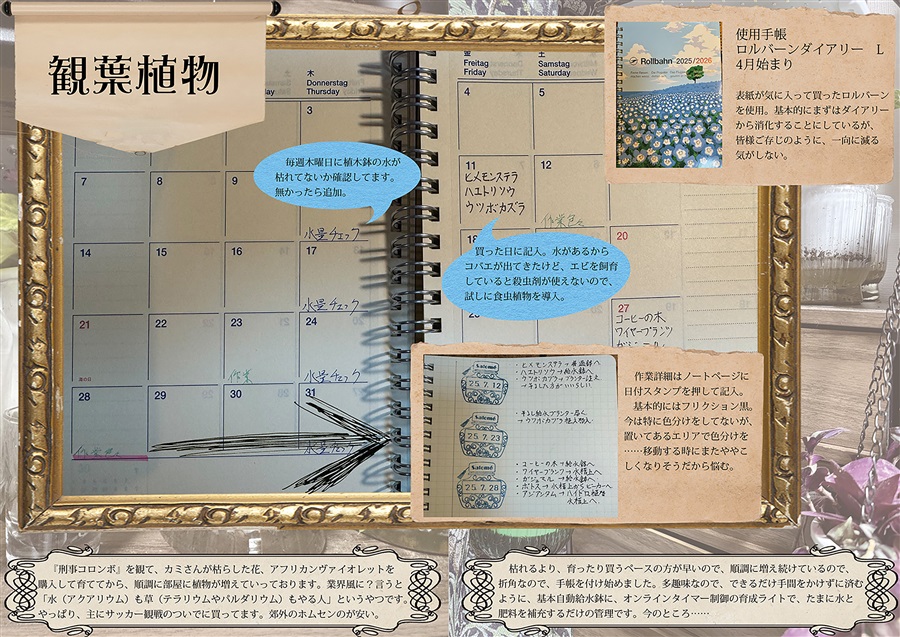 観葉植物
木
Donnerstag
Thursday
3
7
8
9
水量チェック
14
15
16
17
水量チェック
21
22
23
24
作業
水量チェック
28
29
30
31
毎週木曜日に植木鉢の水が
枯れてないか確認してます。
無かったら追加。
金
Freitag
Friday
土
Samstag
Saturday
4
5
11
12
ヒメモンステラ
ハエトリソウ
ウツボカズラ
18
20
買った日に記入。水があるから
コバエが出てきたけど、エビを飼育
していると殺虫剤が使えないので、
試しに食虫植物を導入。
27
コーヒーの木
ワイヤープランツ
Rollbahn 2025/2026
使用手帳
ロルバーンダイアリー L
4月始まり
表紙が気に入って買ったロルバーン
を使用。基本的にまずはダイアリー
から消化することにしているが、
皆様ご存じのように、一向に減る
気がしない。
Salomé
25.7.12
・ヒメモンステラ→
・ハエトリソウ→給水鉢へ
Salomé
25.7.23
Salomé
25.7.28
・コーヒーの木→給水鉢へ
・ワイヤープランツ→水槽上へ
・ガジュマル→給水鉢へ
・ポトス→水槽上からビーカーへ
・アジアンタム→ハイドロ植替
水槽上へ
作業詳細はノートページに
日付スタンプを押して記入。
基本的にはフリクション黒。
今は特に色分けをしてないが、
置いてあるエリアで色分けを
……移動する時にまたややこ
しくなりそうだから悩む。
『刑事コロンボ』を観て、カミさんが枯らした花、アフリカンヴァイオレットを
購入して育ててから、順調に部屋に植物が増えていっております。業界風に？言うと
「水（アクアリウム）も草（テラリウムやパルダリウム）もやる人」というやつです。
やっぱり、主にサッカー観戦のついでに買ってます。郊外のホムセンのが安い。
枯れるより、育ったり買うペースの方が早いので、順調に増え続けているので、
折角なので、手帳を付け始めました。多趣味なので、できるだけ手間をかけずに済む
ように、基本自動給水鉢に、オンラインタイマー制御の育成ライトで、たまに水と
肥料を補充するだけの管理です。今のところ……